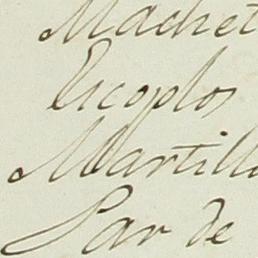 Machet
Escoplos
Martill
Par de